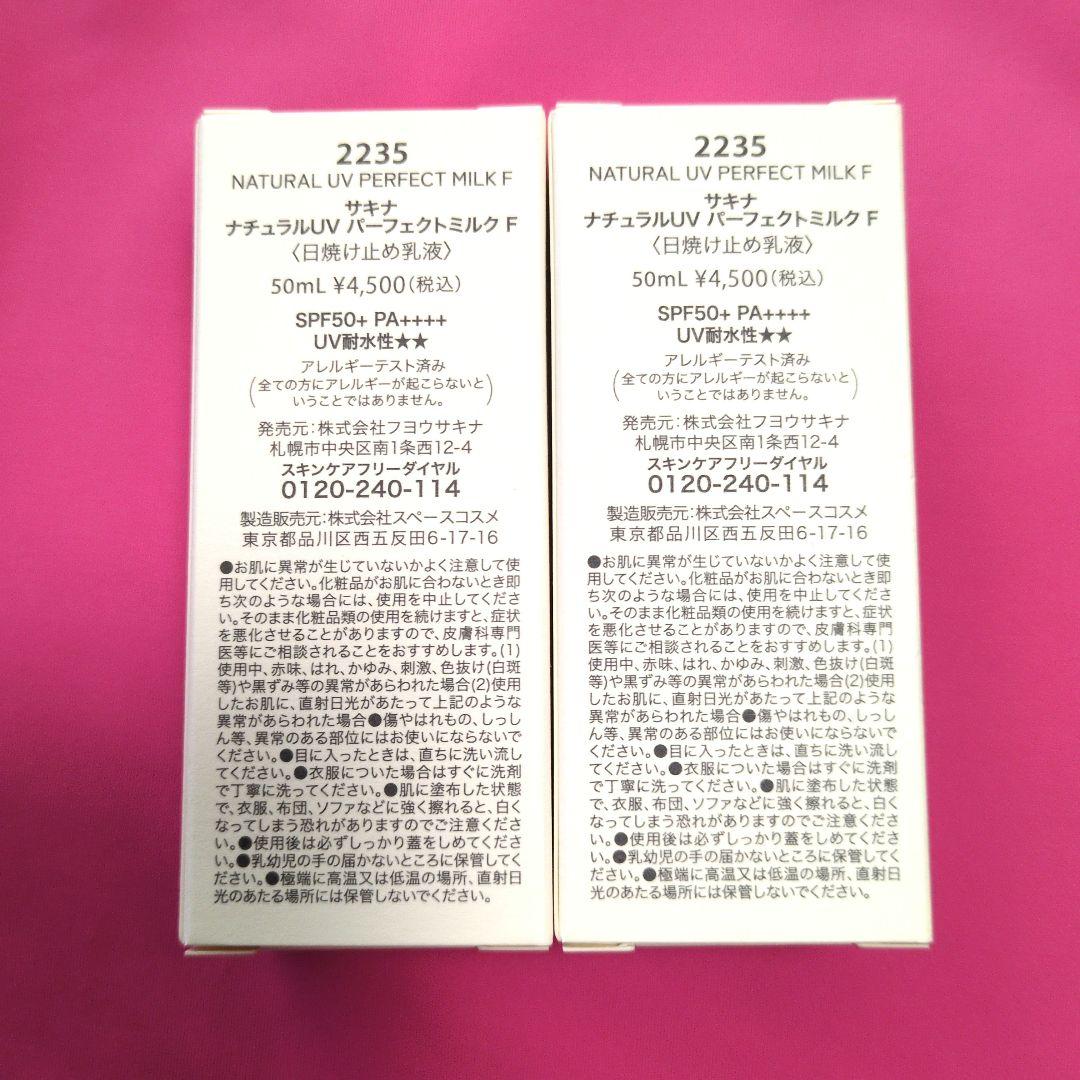 2235
NATURAL UV PERFECT MILK F
サキナ
ナチュラルUV パーフェクトミルク F
〈日焼け止め乳液〉
50mL ¥4,500(税込)
SPF50+ PA++++
UV耐水性★★
アレルギーテスト済み
(全ての方にアレルギーが起こらないと
いうことではありません。)
発売元:株式会社フヨウサキナ
札幌市中央区南1条西12-4
スキンケアフリーダイヤル
0120-240-114
製造販売元:株式会社スペースコスメ
東京都品川区西五反田6-17-16
●お肌に異常が生じていないかよく注意して使
用してください。化粧品がお肌に合わないとき即
ち次のような場合には、使用を中止してくださ
い。そのまま化粧品類の使用を続けますと、症状
を悪化させることがありますので、皮膚科専門
医等にご相談されることをおすすめします。(1)
使用中、赤味、はれ、かゆみ、刺激、色抜け(白斑
等)や黒ずみ等の異常があらわれた場合(2)使用
したお肌に、直射日光があたって上記のような
異常があらわれた場合●傷やはれもの、しっし
ん等、異常のある部位にはお使いにならないで
ください。●目に入ったときは、直ちに洗い流し
てください。●衣服についた場合はすぐに洗剤
で丁寧に洗ってください。●肌に塗布した状態
で、衣服、布団、ソファなどに強く擦れると、白く
なってしまう恐れがありますのでご注意くださ
い。●使用後は必ずしっかり蓋をしめてくださ
い。●乳幼児の手の届かないところに保管してく
ださい。●極端に高温又は低温の場所、直射日
光のあたる場所には保管しないでください。
2235
NATURAL UV PERFECT MILK F
サキナ
ナチュラルUV パーフェクトミルク F
〈日焼け止め乳液〉
50mL ¥4,500(税込)
SPF50+ PA++++
UV耐水性★★
アレルギーテスト済み
(全ての方にアレルギーが起こらないと
いうことではありません。)
発売元:株式会社フヨウサキナ
札幌市中央区南1条西12-4
スキンケアフリーダイヤル
0120-240-114
製造販売元:株式会社スペースコスメ
東京都品川区西五反田6-17-16
●お肌に異常が生じていないかよく注意して使
用してください。化粧品がお肌に合わないとき即
ち次のような場合には、使用を中止してくださ
い。そのまま化粧品類の使用を続けますと、症状
を悪化させることがありますので、皮膚科専門
医等にご相談されることをおすすめします。(1)
使用中、赤味、はれ、かゆみ、刺激、色抜け(白斑
等)や黒ずみ等の異常があらわれた場合(2)使用
したお肌に、直射日光があたって上記のような
異常があらわれた場合●傷やはれもの、しっし
ん等、異常のある部位にはお使いにならないで
ください。●目に入ったときは、直ちに洗い流し
てください。●衣服についた場合はすぐに洗剤
で丁寧に洗ってください。●肌に塗布した状態
で、衣服、布団、ソファなどに強く擦れると、白く
なってしまう恐れがありますのでご注意くださ
い。●使用後は必ずしっかり蓋をしめてくださ
い。●乳幼児の手の届かないところに保管してく
ださい。●極端に高温又は低温の場所、直射日
光のあたる場所には保管しないでください。